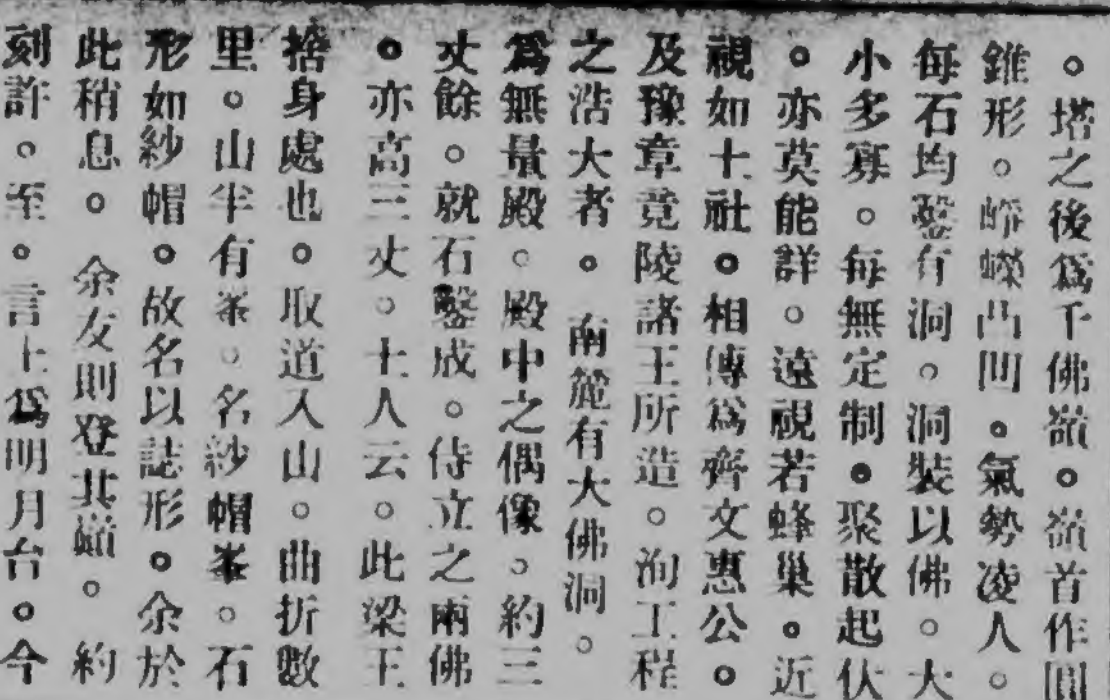 。塔之後爲千佛嶺。嶺首作圓
錐形。崢嶸凸凹。氣勢凌人。
每石均鑿有洞。洞裝以佛。大
小多寡。每無定制。聚散起伏
。亦莫能詳。遠視若蜂巢。近
視如土社。相傳爲齊文惠公。
及豫章竟陵諸王所造。洵工程
之浩大者。南麓有大佛洞。
爲無量殿。殿中之偶像。約三
丈餘。就石鑿成。侍立之兩佛
。亦高三丈。土人云。此梁王
捨身處也。取道入山。曲折數
里。山半有峯。名紗帽峯。石
形如紗帽。故名以誌形。余於
此稍息。余友則登其巔。約
刻許。至。言上爲明月台。今